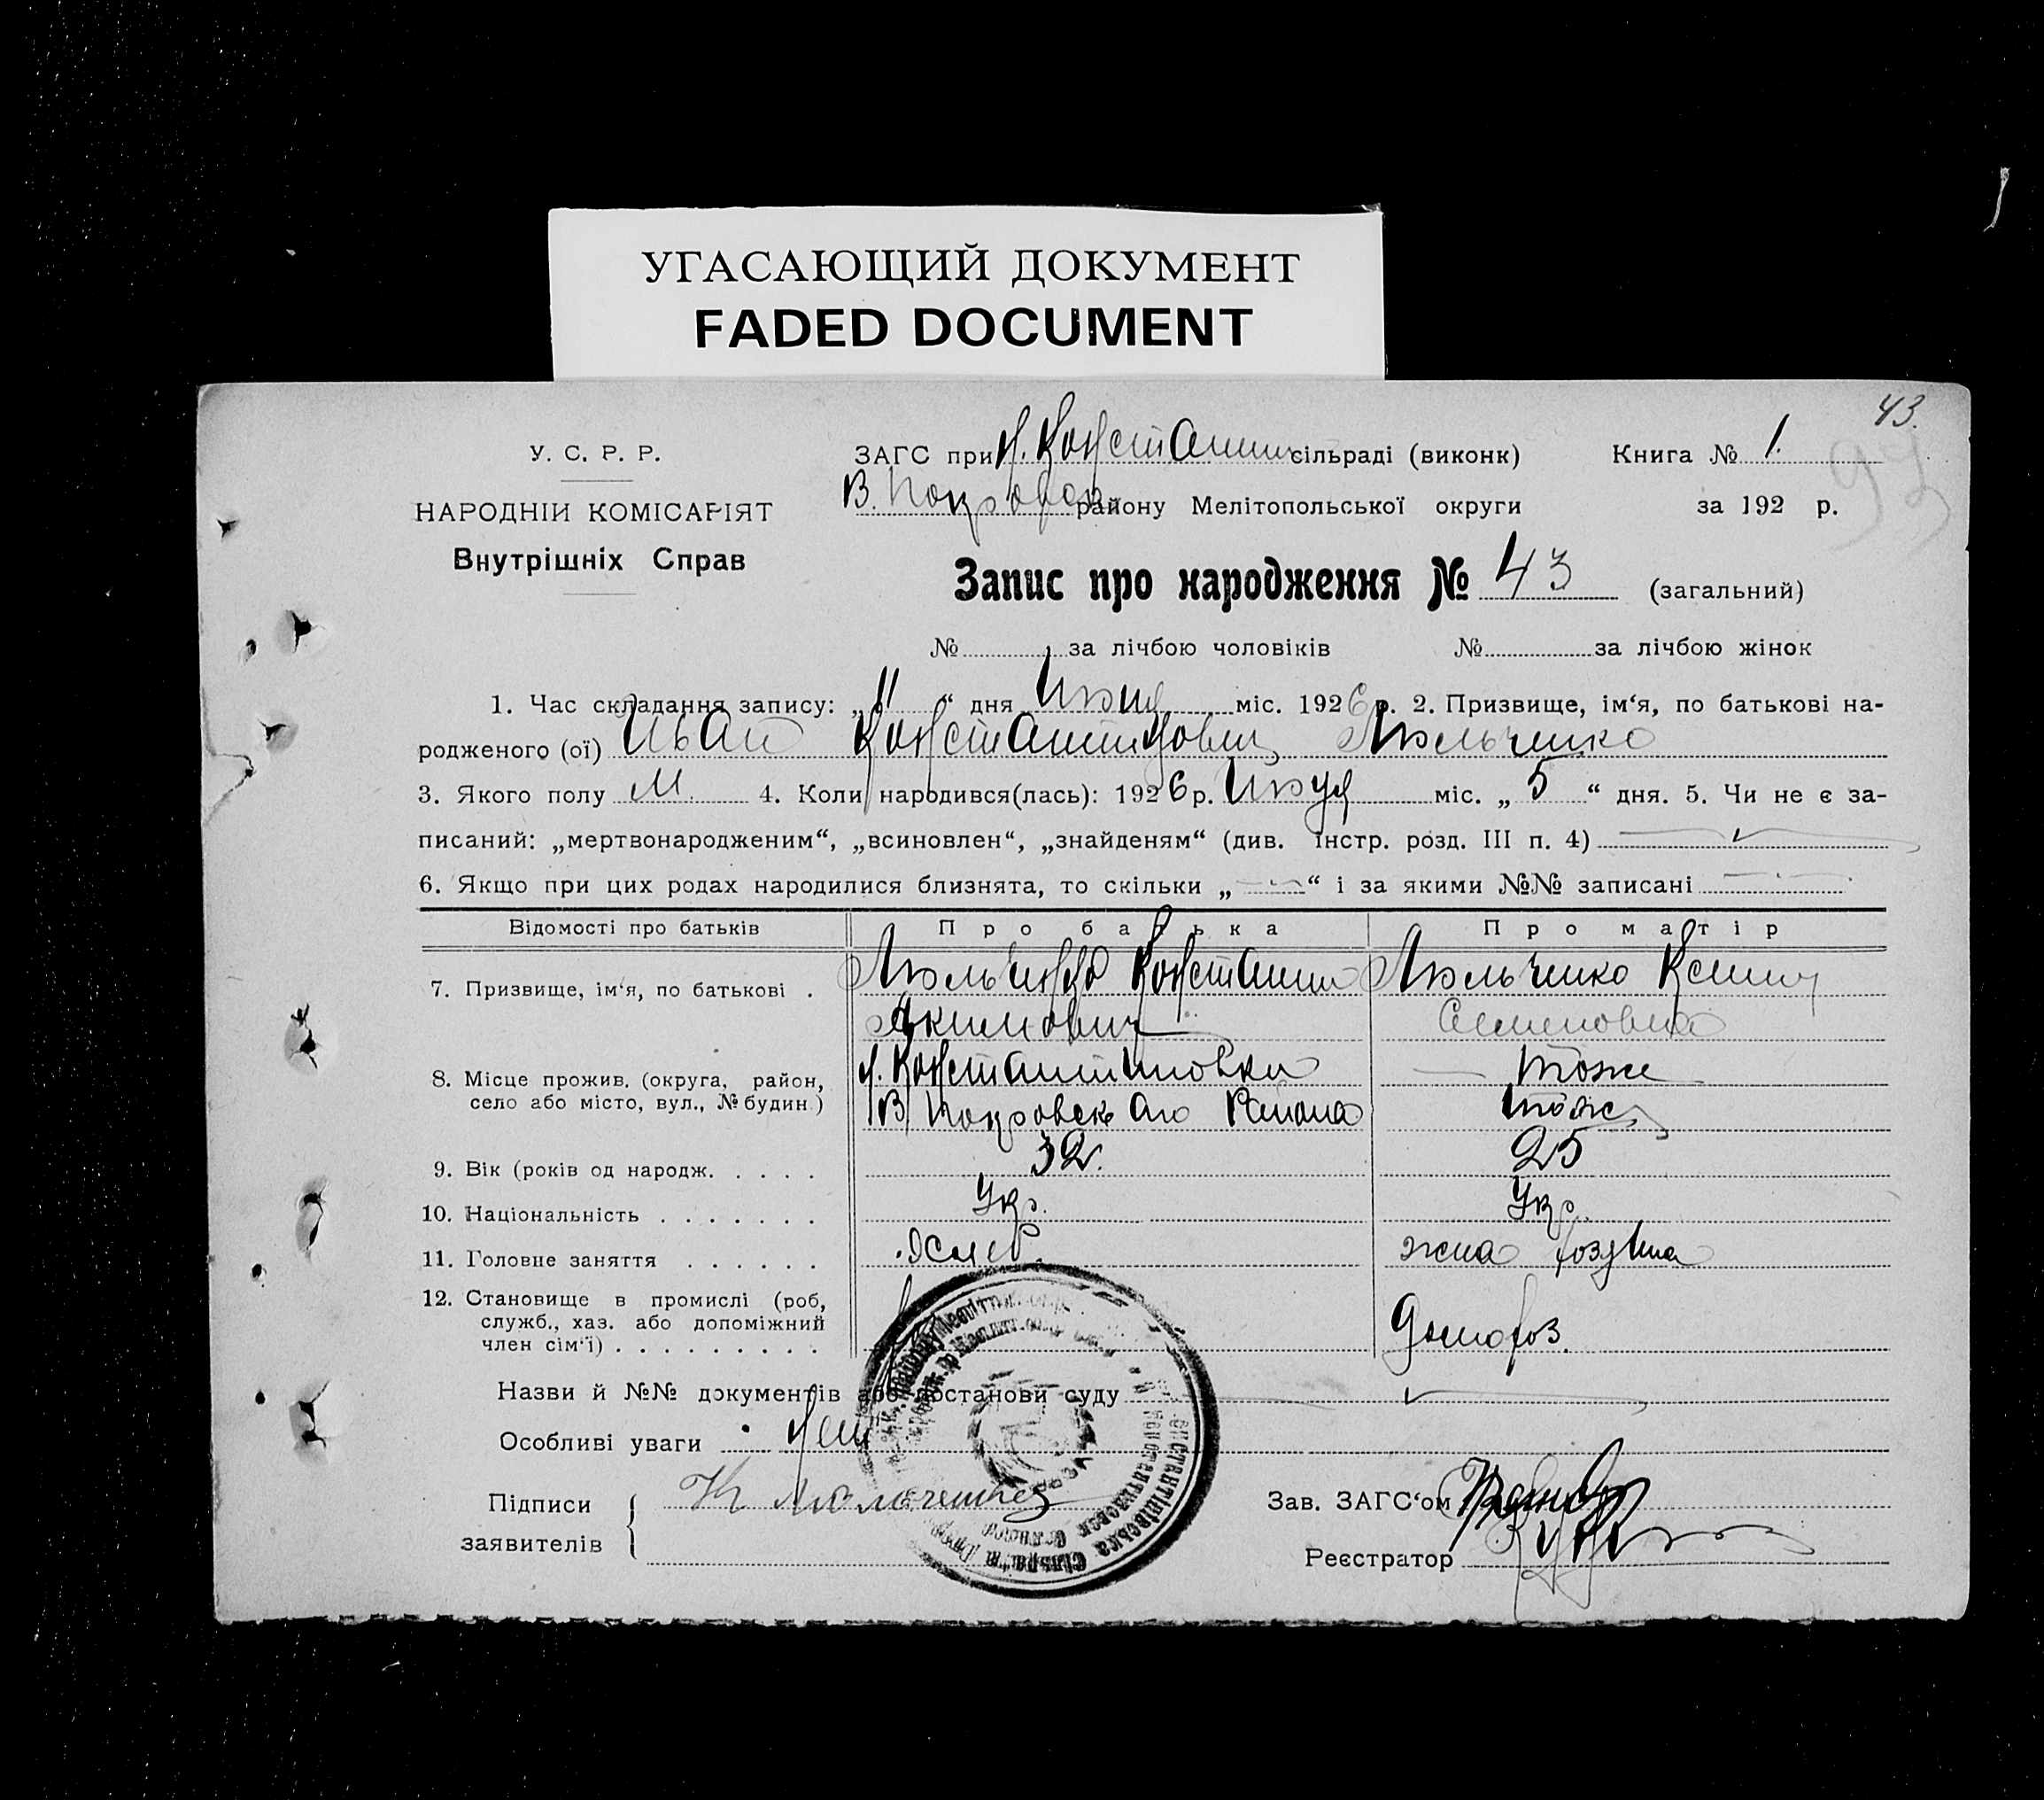 УГАСАЮЩИЙ ДОКУМЕНТ
FADED DOCUMENT
43.
У. С. Р. Р.
НАРОДНІЙ КОМІСАРІЯТ
Внутрішніх Справ
ЗАГС при Н. Константин сільраді (виконк)
Книга № 1.
В. Покровск району Мелітопольської округи
за 192 р.
Запис про народження № 43 (загальний)
№ за лічбою чоловіків № за лічбою жінок
1. Час складання запису: „11“ дня міс. 1926 р. 2. Призвище, ім‘я, по батькові на-
родженого (ої) Иван Константинович Люльченко
3. Якого полу М. 4. Коли народився(лась): 1926 р. міс. „5“ дня. 5. Чи не є за-
писаний: „мертвонародженим“, „всиновлен“, „знайденям“ (див. інстр. розд. III п. 4)
6. Якщо при цих родах народилися близнята, то скільки „ “ і за якими №№ записані
Відомості про батьків Про батька Про матір
7. Призвище, ім‘я, по батькові . Люльченко Константин Люльченко Ксения
Акимович Семеновна
8. Місце прожив. (округа, район, село або місто, вул., № будин) Н. Константиновки тоже
В Покровскаго Района тоже
9. Вік (років од народж. . . . . 32. 25
10. Національність . . . . . . . Укр. Укр.
11. Головне заняття . . . . . . жена
12. Становище в промислі (роб,
служб., хаз. або допоміжний
член сім‘ї) . . . . . . . . . Домохоз.
Назви й №№ документів або постанови суду
Особливі уваги нет
Підписи
заявителів
К Люльченко
Зав. ЗАГС‘ом
Реєстратор